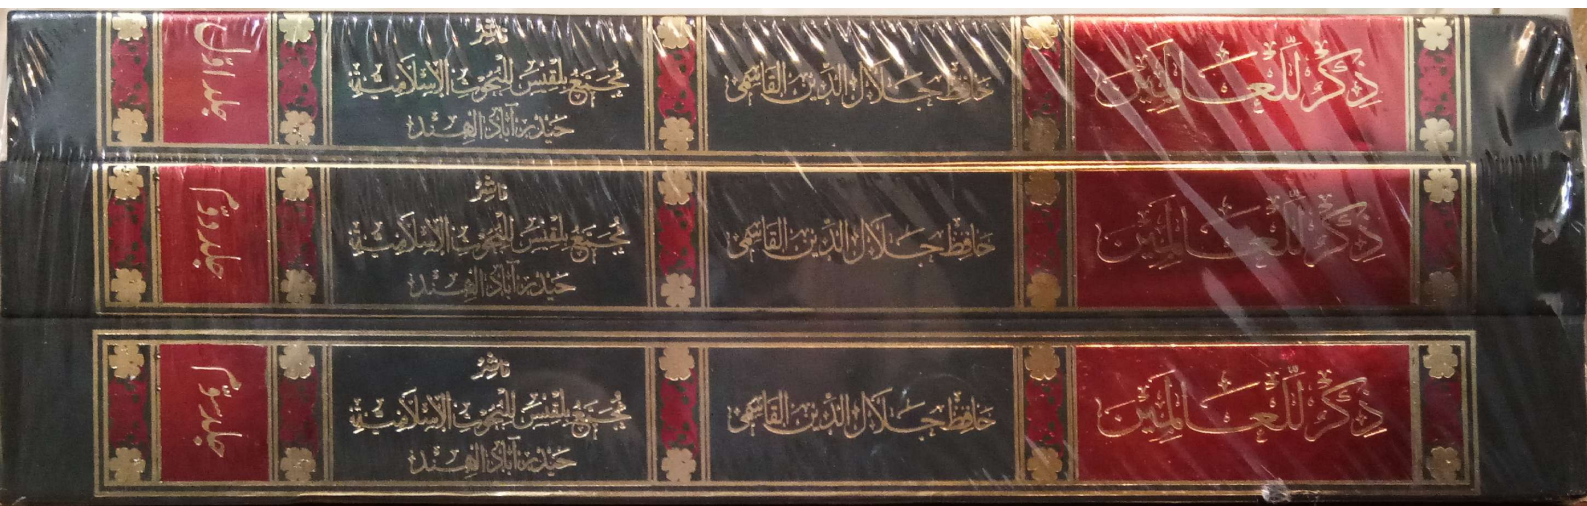 ذِكْرٌ لِّلْعَالَمِيْن
حَافِظ جَلَالُ الدِّين القَاسِمِي
ناشر
مُجَمَّعُ بِلقِيس لِلْبُحُوثِ الإِسْلَامِيَّة
حَيْدَرآبَاد الهِنْد
جلد اوّل
ذِكْرٌ لِّلْعَالَمِيْن
حَافِظ جَلَالُ الدِّين القَاسِمِي
ناشر
مُجَمَّعُ بِلقِيس لِلْبُحُوثِ الإِسْلَامِيَّة
حَيْدَرآبَاد الهِنْد
جلد دوّم
ذِكْرٌ لِّلْعَالَمِيْن
حَافِظ جَلَالُ الدِّين القَاسِمِي
ناشر
مُجَمَّعُ بِلقِيس لِلْبُحُوثِ الإِسْلَامِيَّة
حَيْدَرآبَاد الهِنْد
جلد سوّم